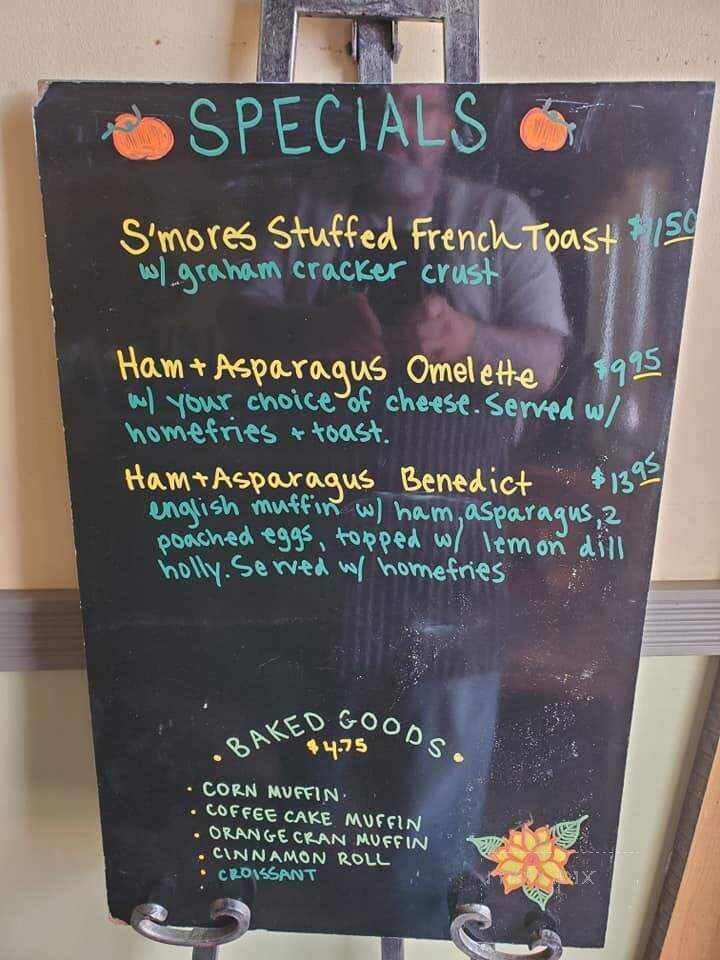 SPECIALS
S'mores Stuffed French Toast $11.50
w/ graham cracker crust
Ham + Asparagus Omelette $9.95
w/ your choice of cheese. Served w/
homefries + toast.
Ham + Asparagus Benedict $13.95
english muffin w/ ham, asparagus, 2
poached eggs, topped w/ lemon dill
holly. Served w/ homefries
• BAKED GOODS •
$4.75
• CORN MUFFIN
• COFFEE CAKE MUFFIN
• ORANGE CRAN MUFFIN
• CINNAMON ROLL
• CROISSANT